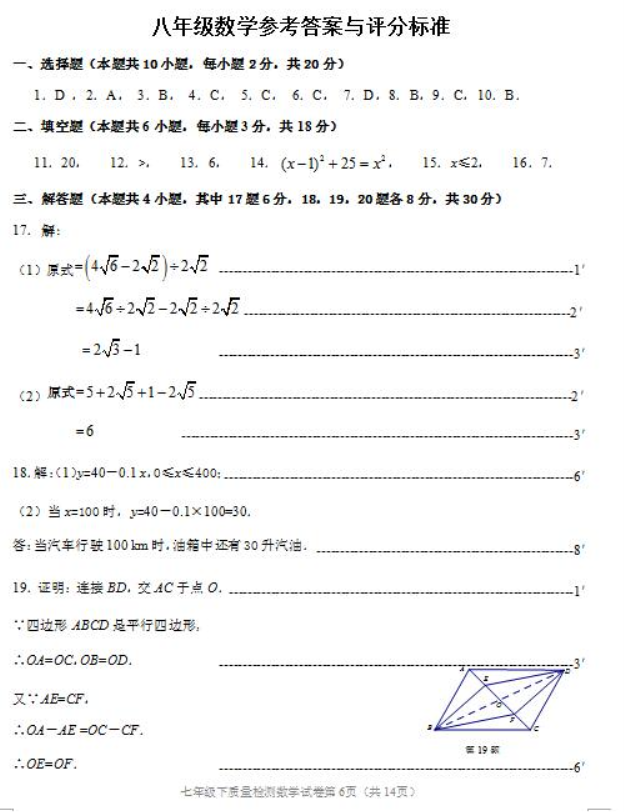 八年级数学参考答案与评分标准
一、选择题（本题共 10 小题，每小题 2 分，共 20 分）
1. D ，2. A， 3. B， 4. C， 5. C， 6. C， 7. D，8. B，9. C，10. B．
二、填空题（本题共 6 小题，每小题 3 分，共 18 分）
11. 20， 12. >， 13. 6， 14. (x−1)²+25=x²， 15. x≤2， 16. 7．
三、解答题（本题共 4 小题，其中 17 题 6 分，18，19，20 题各 8 分，共 30 分）
17. 解：
（1）原式=(4√6−2√2)÷2√2 ----------1′
=4√6÷2√2−2√2÷2√2 ----------2′
=2√3−1 ----------3′
（2）原式=5+2√5+1−2√5 ----------2′
=6 ----------3′
18.解：(1)y=40－0.1x，0≤x≤400； ----------6′
（2）当 x=100 时，y=40－0.1×100=30．
答：当汽车行驶 100 km 时，油箱中还有 30 升汽油． ----------8′
19. 证明：连接 BD，交 AC 于点 O． ----------1′
∵四边形 ABCD 是平行四边形，
∴OA=OC，OB=OD． ----------3′
又∵AE=CF，
∴OA－AE =OC－CF．
∴OE=OF． ----------6′
A
D
E
O
F
B
C
第 19 题
七年级下质量检测数学试卷第 6页（共 14页）